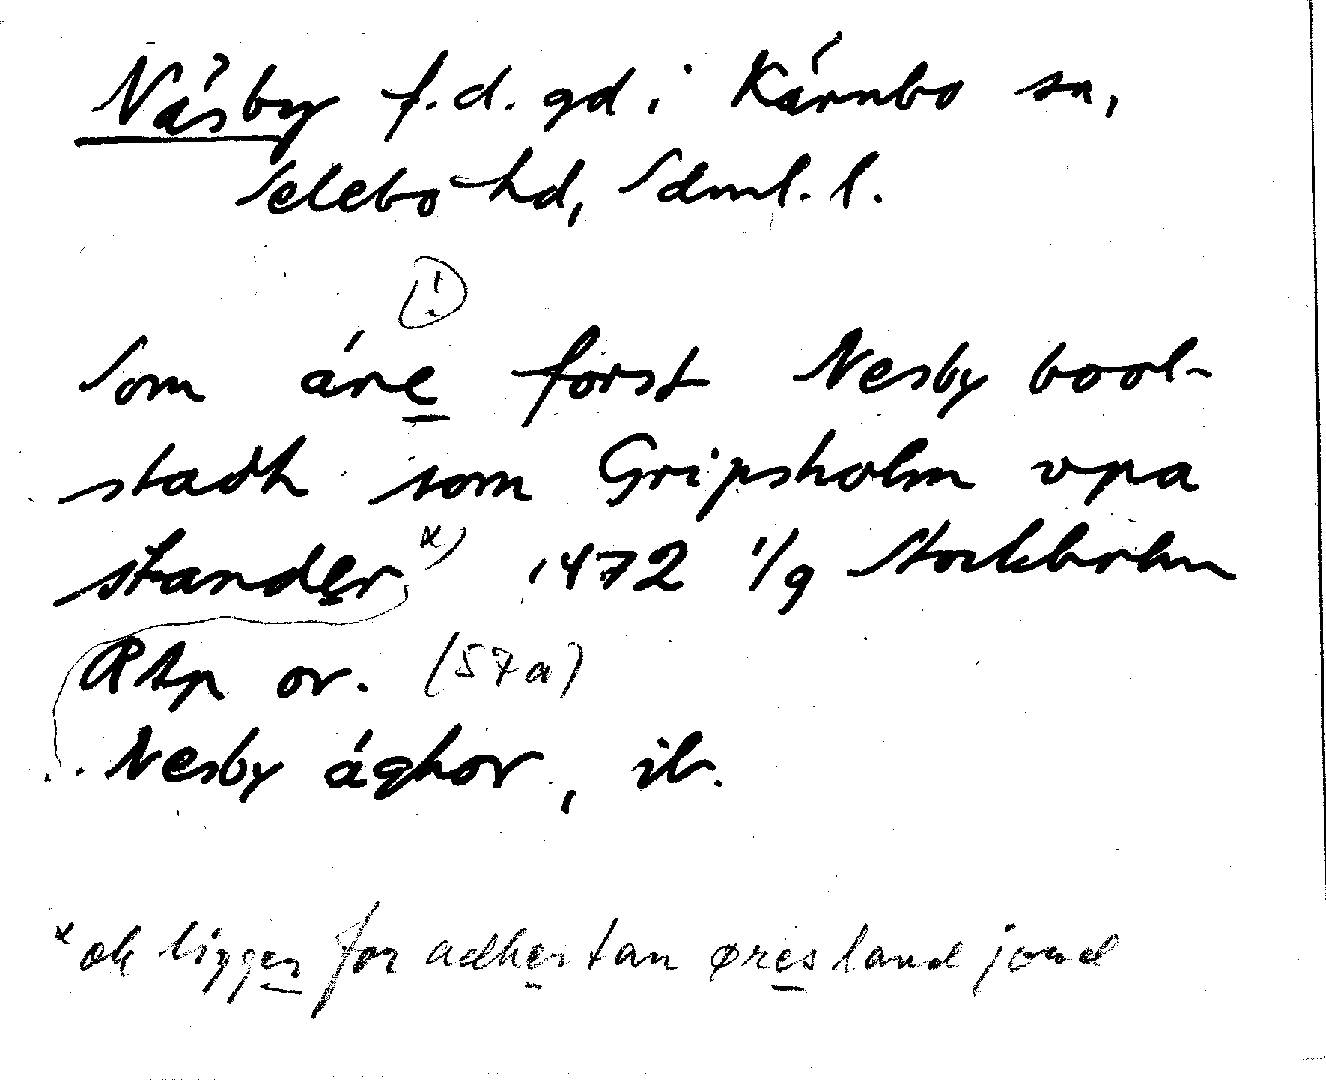 Näsby f.d. gd i Kärnbo sn,
Selebo hd, Sdml. l.
(!)
Som äre först Nesby bool-
stadh som Gripsholm vpa
stander x) 1472 1/9 Stockholm
RAp or. (57a)
Nesby äghor, ib.
x ok ligger for adhertan øres land jord